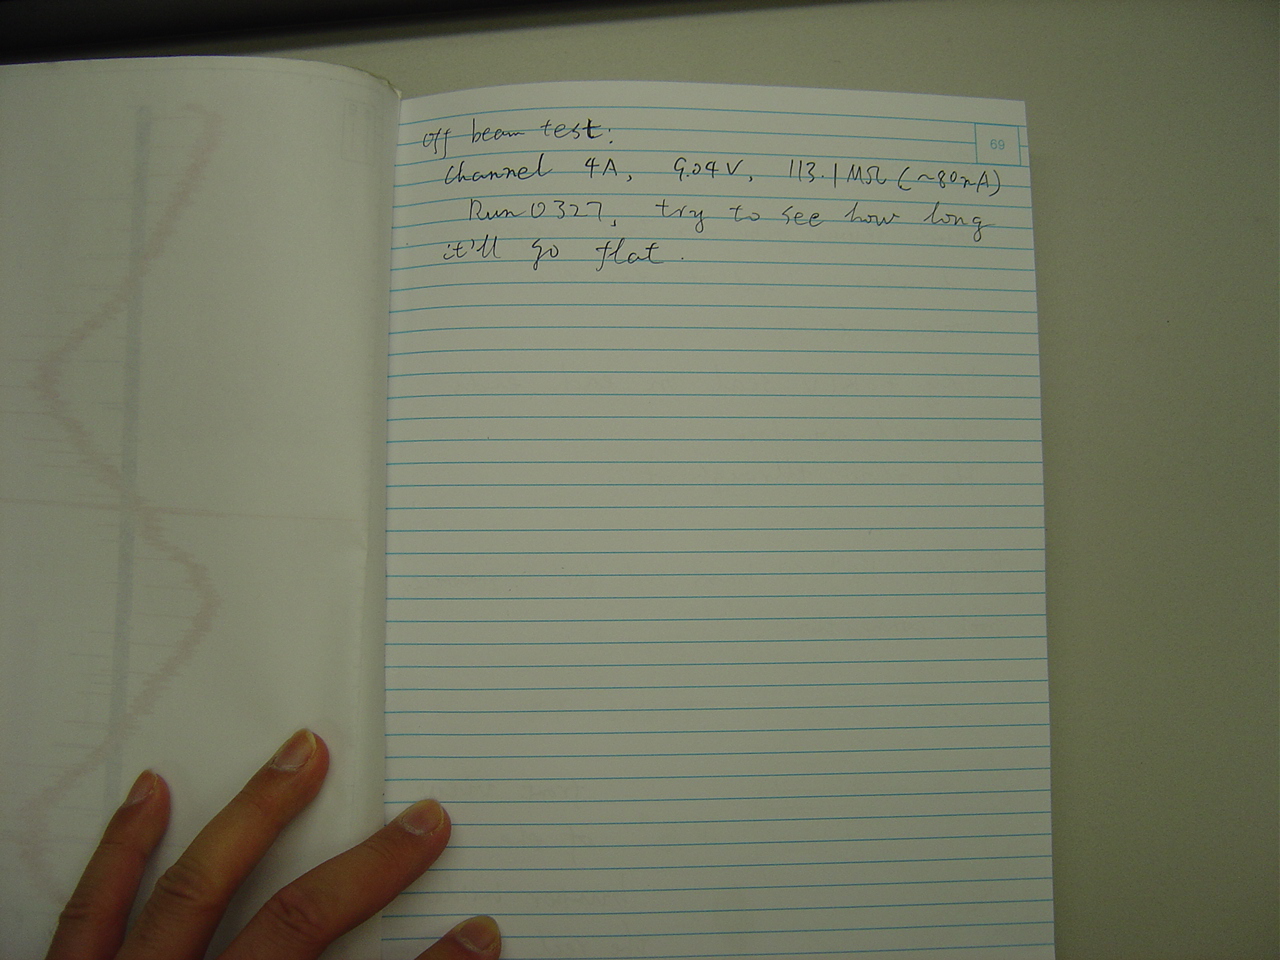 off beam test:
69
Channel 4A, 9.04V, 113.1MΩ (~80nA)
Run 0327, try to see how long
it'll go flat.